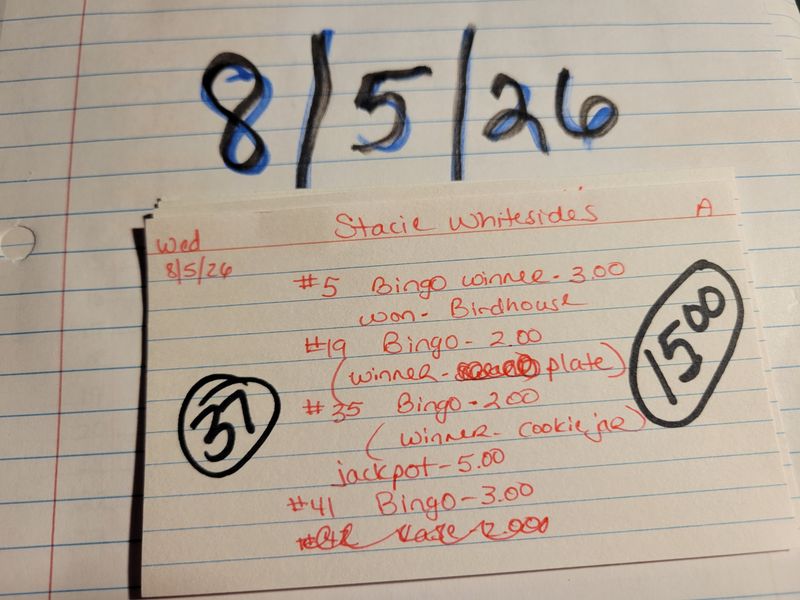 8/5/26
Stacie Whitesides
A
Wed
8/5/26
#5 Bingo winner - 3.00
won - Birdhouse
#19 Bingo - 2.00
(winner - plate)
#35 Bingo - 2.00
(winner - cookie jar)
jackpot - 5.00
#41 Bingo - 3.00
37
15.00